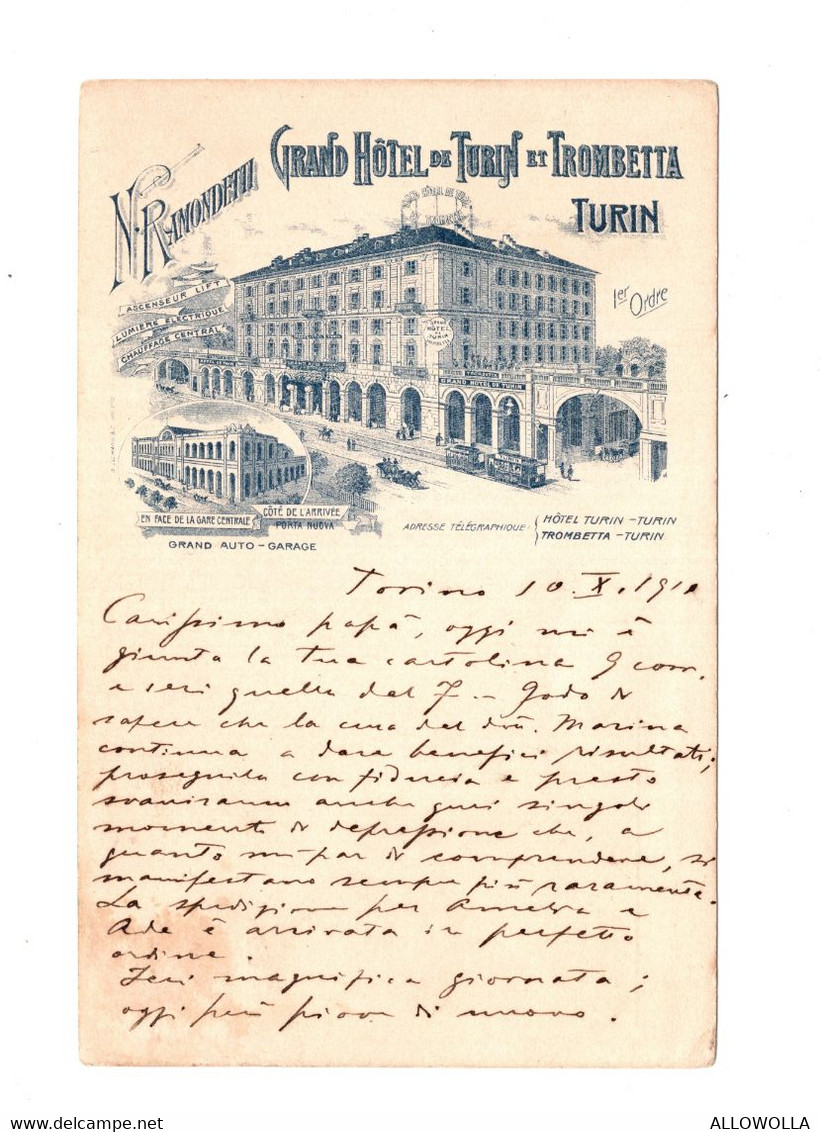 N. RAMONDETTI
GRAND HÔTEL DE TURIN ET TROMBETTA
TURIN
1er Ordre
ASCENSEUR LIFT
LUMIÈRE ÉLECTRIQUE
CHAUFFAGE CENTRAL
HÔTEL
TURIN
GRAND HÔTEL DE TURIN
EN FACE DE LA GARE CENTRALE
CÔTÉ DE L'ARRIVÉE
PORTA NUOVA
GRAND AUTO-GARAGE
ADRESSE TÉLÉGRAPHIQUE: HÔTEL TURIN-TURIN
TROMBETTA-TURIN
Torino 10.X.1910
Carissimo papà, oggi mi è
giunta la tua cartolina 9 corr.
e ieri quella del 7 - Godo di
sapere che la cura del Marina
continua a dare benefici risultati;
proseguila con fiducia e presto
svaniranno anche quei singoli
momenti di depressione che, a
quanto mi par di comprendere, si
manifestano sempre più raramente.
La spedizione per e
Ade è arrivata in perfetto
ordine.
Ieri magnifica giornata;
oggi però piove di nuovo.
ALLOWOLLA